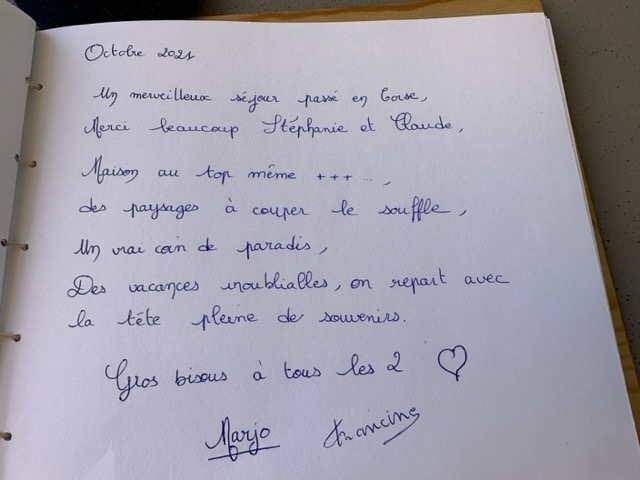 Octobre 2021
Un merveilleux séjour passé en Corse,
Merci beaucoup Stéphanie et Claude,
Maison au top même +++ ...,
des paysages à couper le souffle,
Un vrai coin de paradis,
Des vacances inoubliables, on repart avec
la tête pleine de souvenirs.
Gros bisous à tous les 2 ♡
Marjo Francine